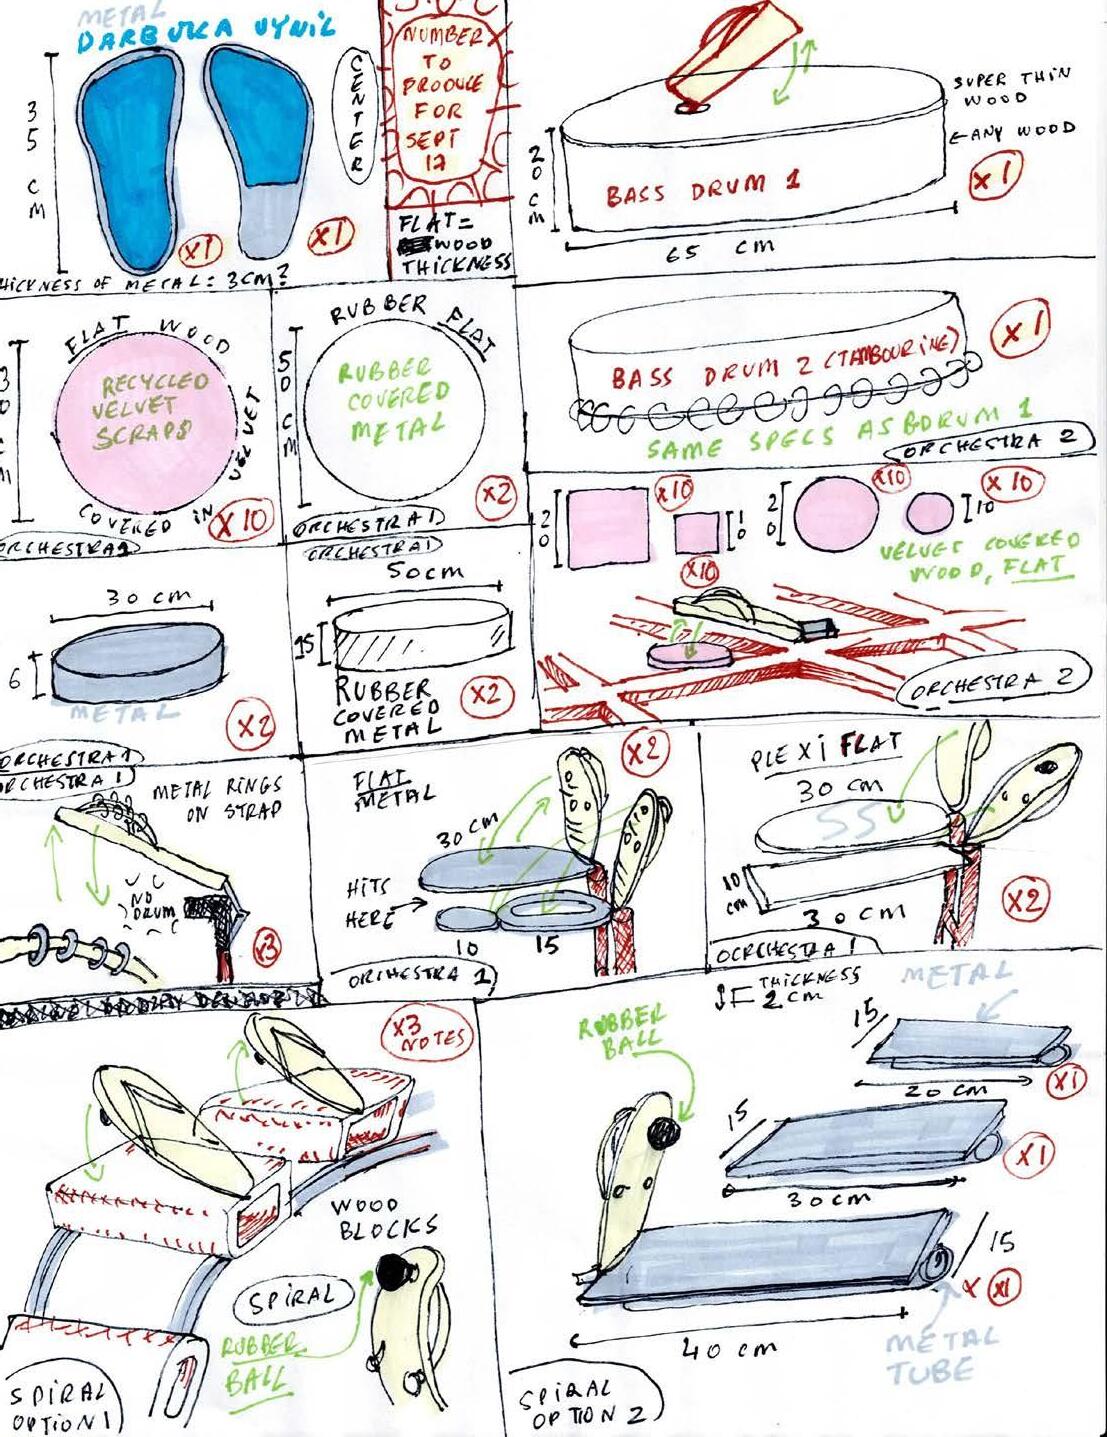 METAL
DARBUKA VYNIL
35 CM
x1
x1
THICKNESS OF METAL: 3CM?
CENTER
NUMBER
TO
PRODUCE
FOR
SEPT
12
FLAT=
WOOD
THICKNESS
SUPER THIN
WOOD
ANY WOOD
20 CM
BASS DRUM 1
x1
65 CM
FLAT WOOD
COVERED IN VELVET
30 CM
RECYCLED
VELVET
SCRAPS
x10
RUBBER FLAT
50 CM
RUBBER
COVERED
METAL
x2
ORCHESTRA 1
BASS DRUM 2 (TAMBOURINE)
x1
SAME SPECS AS BDRUM 1
ORCHESTRA 2
20
x10
10
x10
20
x10
10
x10
VELVET COVERED
WOOD, FLAT
ORCHESTRA 2
30 cm
6
METAL
x2
ORCHESTRA 1
ORCHESTRA 1
50cm
15
RUBBER
COVERED
METAL
x2
ORCHESTRA 1
METAL RINGS
ON STRAP
NO
DRUM
x3
FLAT
METAL
x2
30 CM
HITS
HERE
10
15
ORCHESTRA 1
PLEXI FLAT
30 cm
SS
10
cm
30 cm
x2
OCRCHESTRA 1
x3
NOTES
WOOD
BLOCKS
SPIRAL
RUBBER
BALL
SPIRAL
OPTION 1
THICKNESS
2 CM
METAL
RUBBER
BALL
15
20 cm
x1
15
30cm
x1
15
x1
40 cm
METAL
TUBE
SPIRAL
OPTION 2